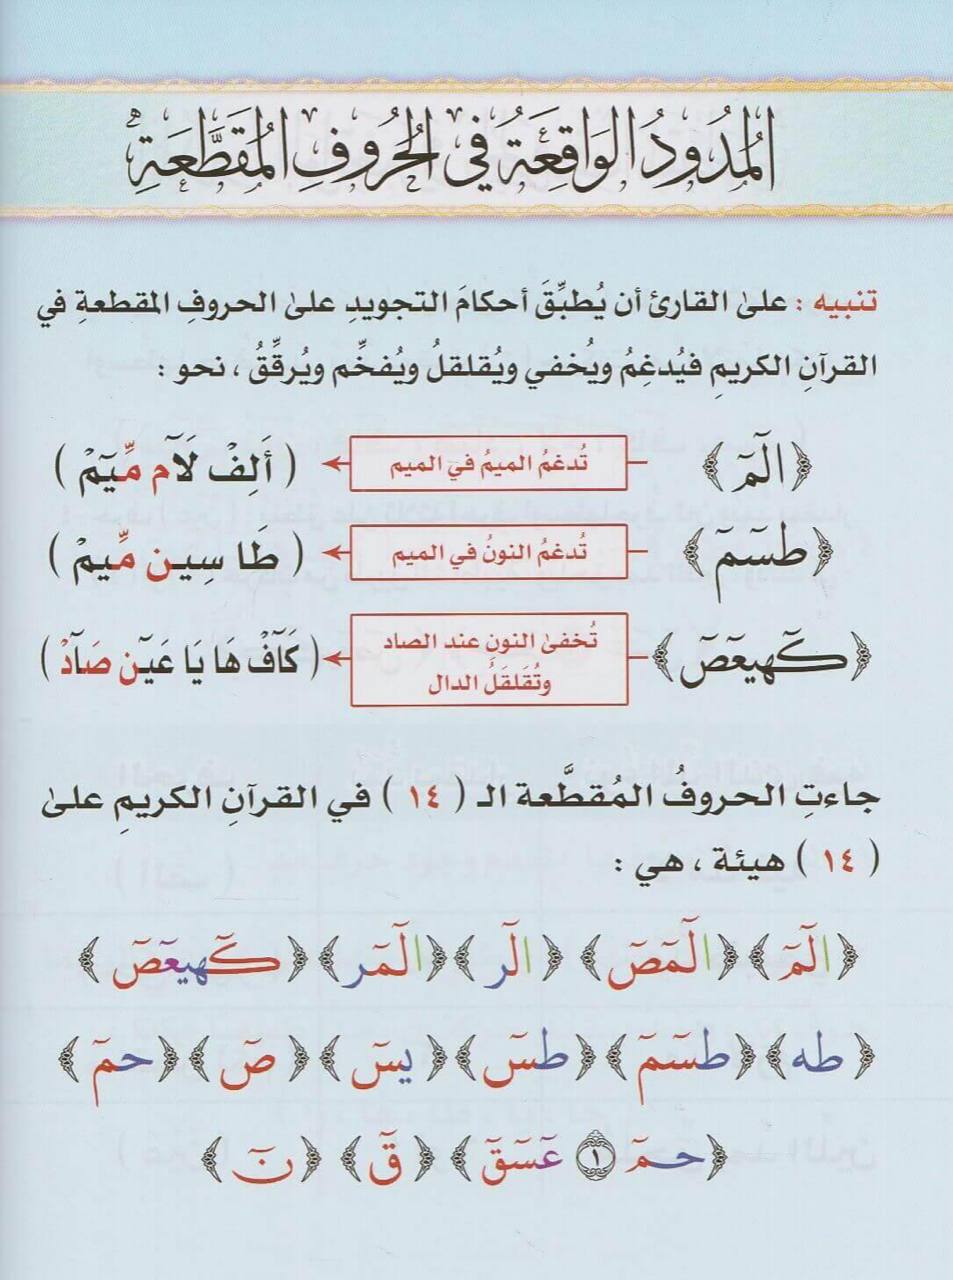 المُدُودُ الوَاقِعَةُ فِي الحُرُوفِ المُقَطَّعَةِ
تنبيه : علىٰ القارئ أن يُطبِّقَ أحكامَ التجويدِ علىٰ الحروفِ المقطعةِ في
القرآنِ الكريمِ فيُدغِمُ ويُخفي ويُقلقلُ ويُفخِّم ويُرقِّقُ ، نحو :
﴿الٓمٓ﴾ تُدغمُ الميمُ في الميم ( أَلِفْ لَآم مِّيٓمْ )
﴿طسٓمٓ﴾ تُدغمُ النونُ في الميم ( طَا سِيٓن مِّيٓمْ )
﴿كٓهيعٓصٓ﴾ تُخفىٰ النون عند الصاد
وتُقَلقَلُ الدال ( كَآفْ هَا يَا عَيٓن صَآدْ )
جاءتِ الحروفُ المُقطَّعة الـ ( ١٤ ) في القرآنِ الكريمِ علىٰ
( ١٤ ) هيئة ، هي :
﴿الٓمٓ﴾ ﴿الٓمٓصٓ﴾ ﴿الٓر﴾ ﴿الٓمٓر﴾ ﴿كٓهيعٓصٓ﴾
﴿طه﴾ ﴿طسٓمٓ﴾ ﴿طسٓ﴾ ﴿يسٓ﴾ ﴿صٓ﴾ ﴿حمٓ﴾
﴿حمٓ ١ عٓسٓقٓ﴾ ﴿قٓ﴾ ﴿نٓ﴾